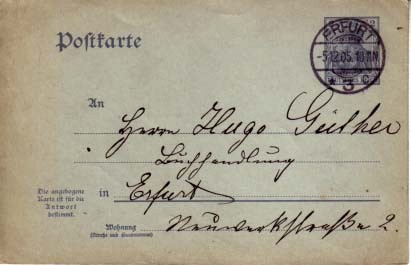 Postkarte
ERFURT
-5.12.05.10-11N
* 3 c
2
An
Herrn Hugo Güther
Buchhandlung
Die angebogene
Karte ist für die
Antwort
bestimmt.
in Erfurt
Wohnung
(Straße und Hausnummer)
Neuwerkstraße 2.